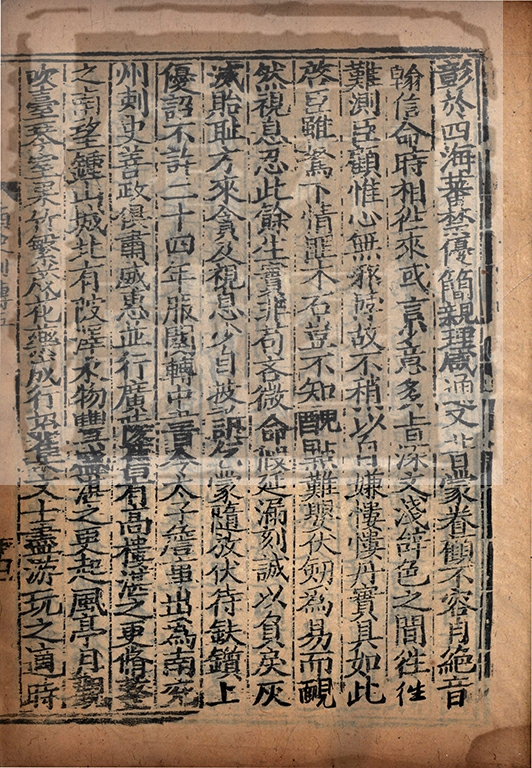 彰於四海蕃禁優簡親理咸通又昔蒙眷顧不容自絶音
翰信命時相徃來或言少意多旨深文淺辭色之間徃徃
難測臣顧惟心無邪悖故不稍以自嫌慺慺丹實具如此
啓臣雖駑下情匪木石豈不知醜點難嬰伏劒為易而靦
然視息忍此餘生實非苟吝微命假延漏刻誠以負戾灰
滅貽恥方來貪及視息少自披訴乞蒙隨放伏待鈇鑕上
優詔不許二十四年服闋轉中書令太子詹事出為南兖
州刺史善政俱肅威惠並行廣陵舊有高樓湛之更脩整
之南望鍾山城北有陂澤水物豐盛湛之更起風亭月觀
吹臺琴室果竹繁茂花藥成行招集文士盡游玩之適時